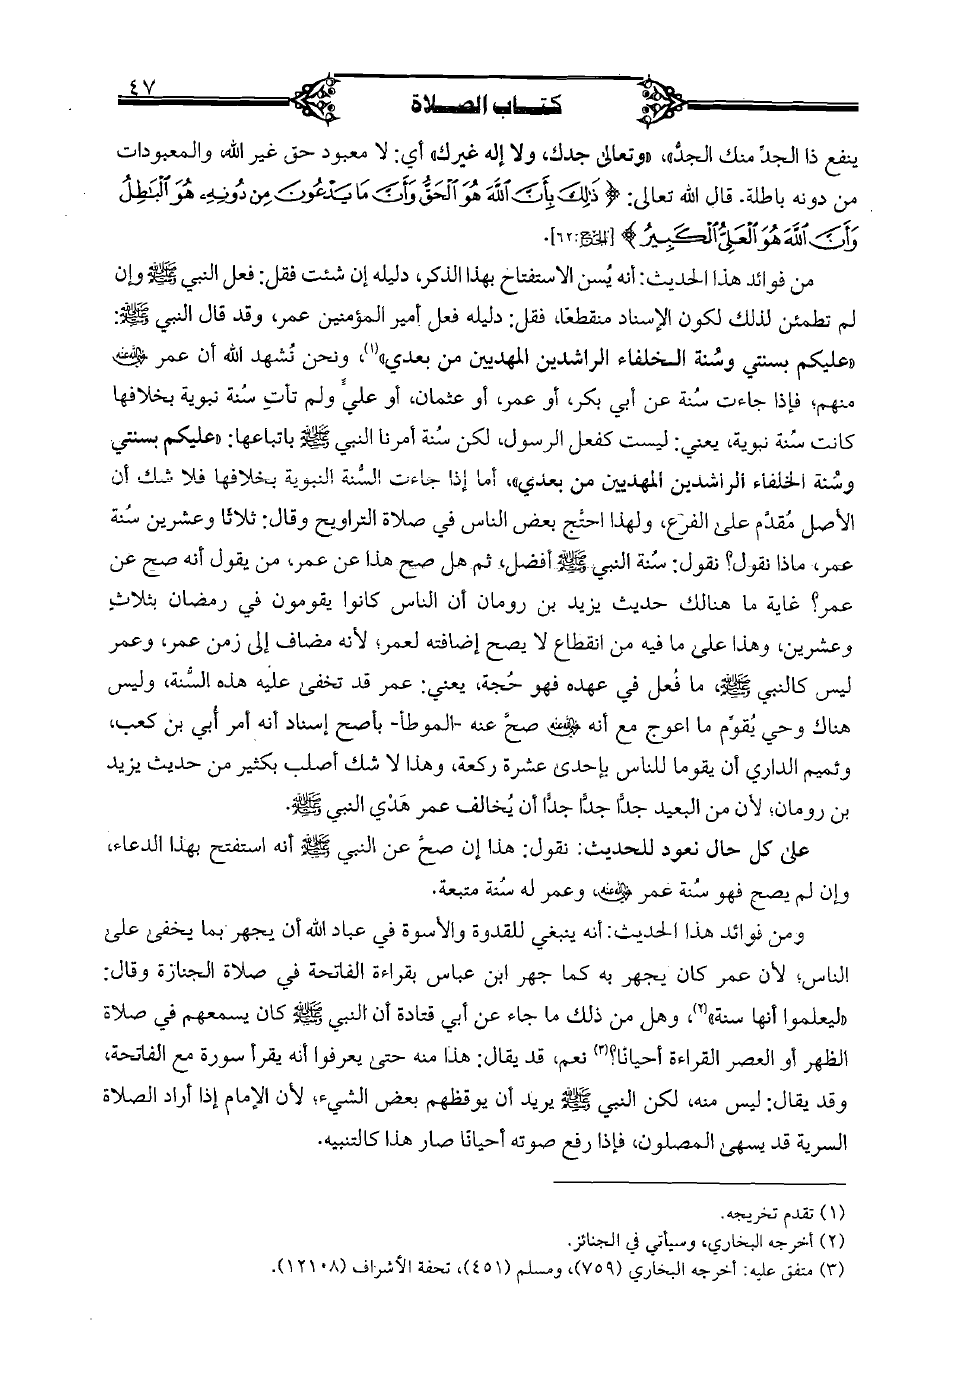 ٤٧
كتاب الصلاة
ينفع ذا الجدِّ منك الجدُّ»، «وتعالى جدك، ولا إله غيرك» أي: لا معبود حق غير الله، والمعبودات
من دونه باطلة. قال الله تعالى: ﴿ذَٰلِكَ بِأَنَّ ٱللَّهَ هُوَ ٱلْحَقُّ وَأَنَّ مَا يَدْعُونَ مِن دُونِهِۦ هُوَ ٱلْبَٰطِلُ
وَأَنَّ ٱللَّهَ هُوَ ٱلْعَلِيُّ ٱلْكَبِيرُ﴾ [الحج: ٦٢].
من فوائد هذا الحديث: أنه يُسن الاستفتاح بهذا الذكر، دليله إن شئت فقل: فعل النبي ﷺ وإن
لم تطمئن لذلك لكون الإسناد منقطعًا، فقل: دليله فعل أمير المؤمنين عمر، وقد قال النبي ﷺ:
«عليكم بسنتي وسُنة الخلفاء الراشدين المهديين من بعدي»(١)، ونحن نُشهد الله أن عمر رضي الله عنه
منهم؛ فإذا جاءت سُنة عن أبي بكر، أو عمر، أو عثمان، أو عليٍّ ولم تأتِ سُنة نبوية بخلافها
كانت سُنة نبوية، يعني: ليست كفعل الرسول، لكن سُنة أمرنا النبي ﷺ باتباعها: «عليكم بسنتي
وسُنة الخلفاء الراشدين المهديين من بعدي»، أما إذا جاءت السُّنة النبوية بخلافها فلا شك أن
الأصل مُقدَّم على الفرع، ولهذا احتَّج بعض الناس في صلاة التراويح وقال: ثلاثًا وعشرين سُنة
عمر، ماذا نقول؟ نقول: سُنة النبي ﷺ أفضل، ثم هل صح هذا عن عمر، من يقول أنه صح عن
عمر؟ غاية ما هنالك حديث يزيد بن رومان أن الناس كانوا يقومون في رمضان بثلاثٍ
وعشرين، وهذا على ما فيه من انقطاع لا يصح إضافته لعمر؛ لأنه مضاف إلى زمن عمر، وعمر
ليس كالنبي ﷺ، ما فُعل في عهده فهو حُجة، يعني: عمر قد تخفى عليه هذه السُّنة، وليس
هناك وحي يُقوِّم ما اعوج مع أنه رضي الله عنه صحَّ عنه -الموطأ- بأصح إسناد أنه أمر أُبي بن كعب،
وتميم الداري أن يقوما للناس بإحدى عشرة ركعة، وهذا لا شك أصلب بكثير من حديث يزيد
بن رومان؛ لأن من البعيد جدًّا جدًّا جدًّا أن يُخالف عمر هَدْي النبي ﷺ.
على كل حال نعود للحديث: نقول: هذا إن صحَّ عن النبي ﷺ أنه استفتح بهذا الدعاء،
وإن لم يصح فهو سُنة عمر رضي الله عنه، وعمر له سُنة متبعة.
ومن فوائد هذا الحديث: أنه ينبغي للقدوة والأسوة في عباد الله أن يجهر بما يخفى على
الناس؛ لأن عمر كان يجهر به كما جهر ابن عباس بقراءة الفاتحة في صلاة الجنازة وقال:
«ليعلموا أنها سنة»(٢)، وهل من ذلك ما جاء عن أبي قتادة أن النبي ﷺ كان يسمعهم في صلاة
الظهر أو العصر القراءة أحيانًا؟(٣) نعم، قد يقال: هذا منه حتى يعرفوا أنه يقرأ سورة مع الفاتحة،
وقد يقال: ليس منه، لكن النبي ﷺ يريد أن يوقظهم بعض الشيء؛ لأن الإمام إذا أراد الصلاة
السرية قد يسهى المصلون، فإذا رفع صوته أحيانًا صار هذا كالتنبيه.
(١) تقدم تخريجه.
(٢) أخرجه البخاري، وسيأتي في الجنائز.
(٣) متفق عليه: أخرجه البخاري (٧٥٩)، ومسلم (٤٥١)، تحفة الأشراف (١٢١٠٨).